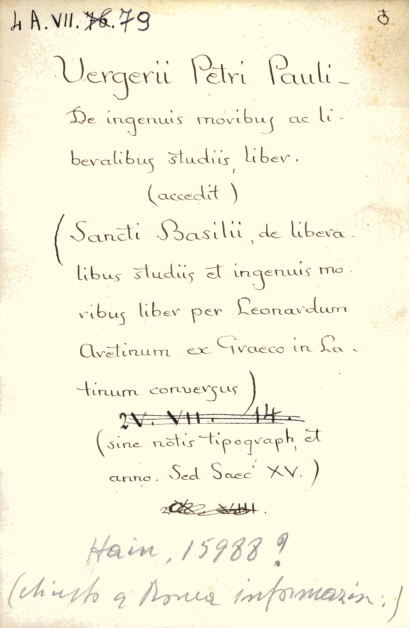 4 A. VII. 76. 79
Vergerii Petri Pauli-
De ingenuis moribus ac li-
beralibus studiis, liber.
(accedit)
(Sancti Basilii, de libera-
libus studiis et ingenuis mo-
ribus liber per Leonardum
Aretinum ex Graeco in La-
tinum conversus)
2V. VII. 14.
(sine notis tipograph, et
anno. Sed Saec XV.)
Hain, 15988?
(chiesto a Roma informazin:)